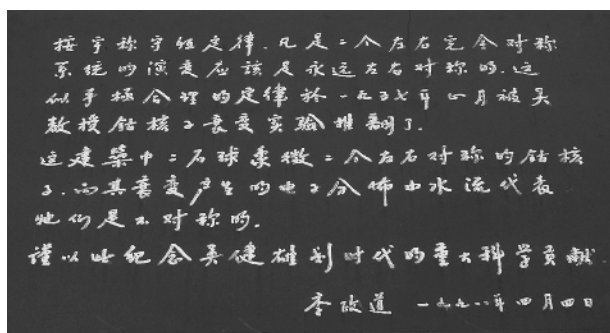 按宇称守恒定律，凡是二个左右完全对称
系统的演变应該是永远左右对称的。这
似乎極合理的定律於一九五七年正月被吴
教授钴核子衰变实验推翻了。
这建築中二石球象徵二个左右对称的钴核
子，而其衰变产生的电子分佈由水流代表
它们是不对称的。
謹以此纪念吴健雄划时代的重大科学贡献。
李政道 一九九八年四月四日